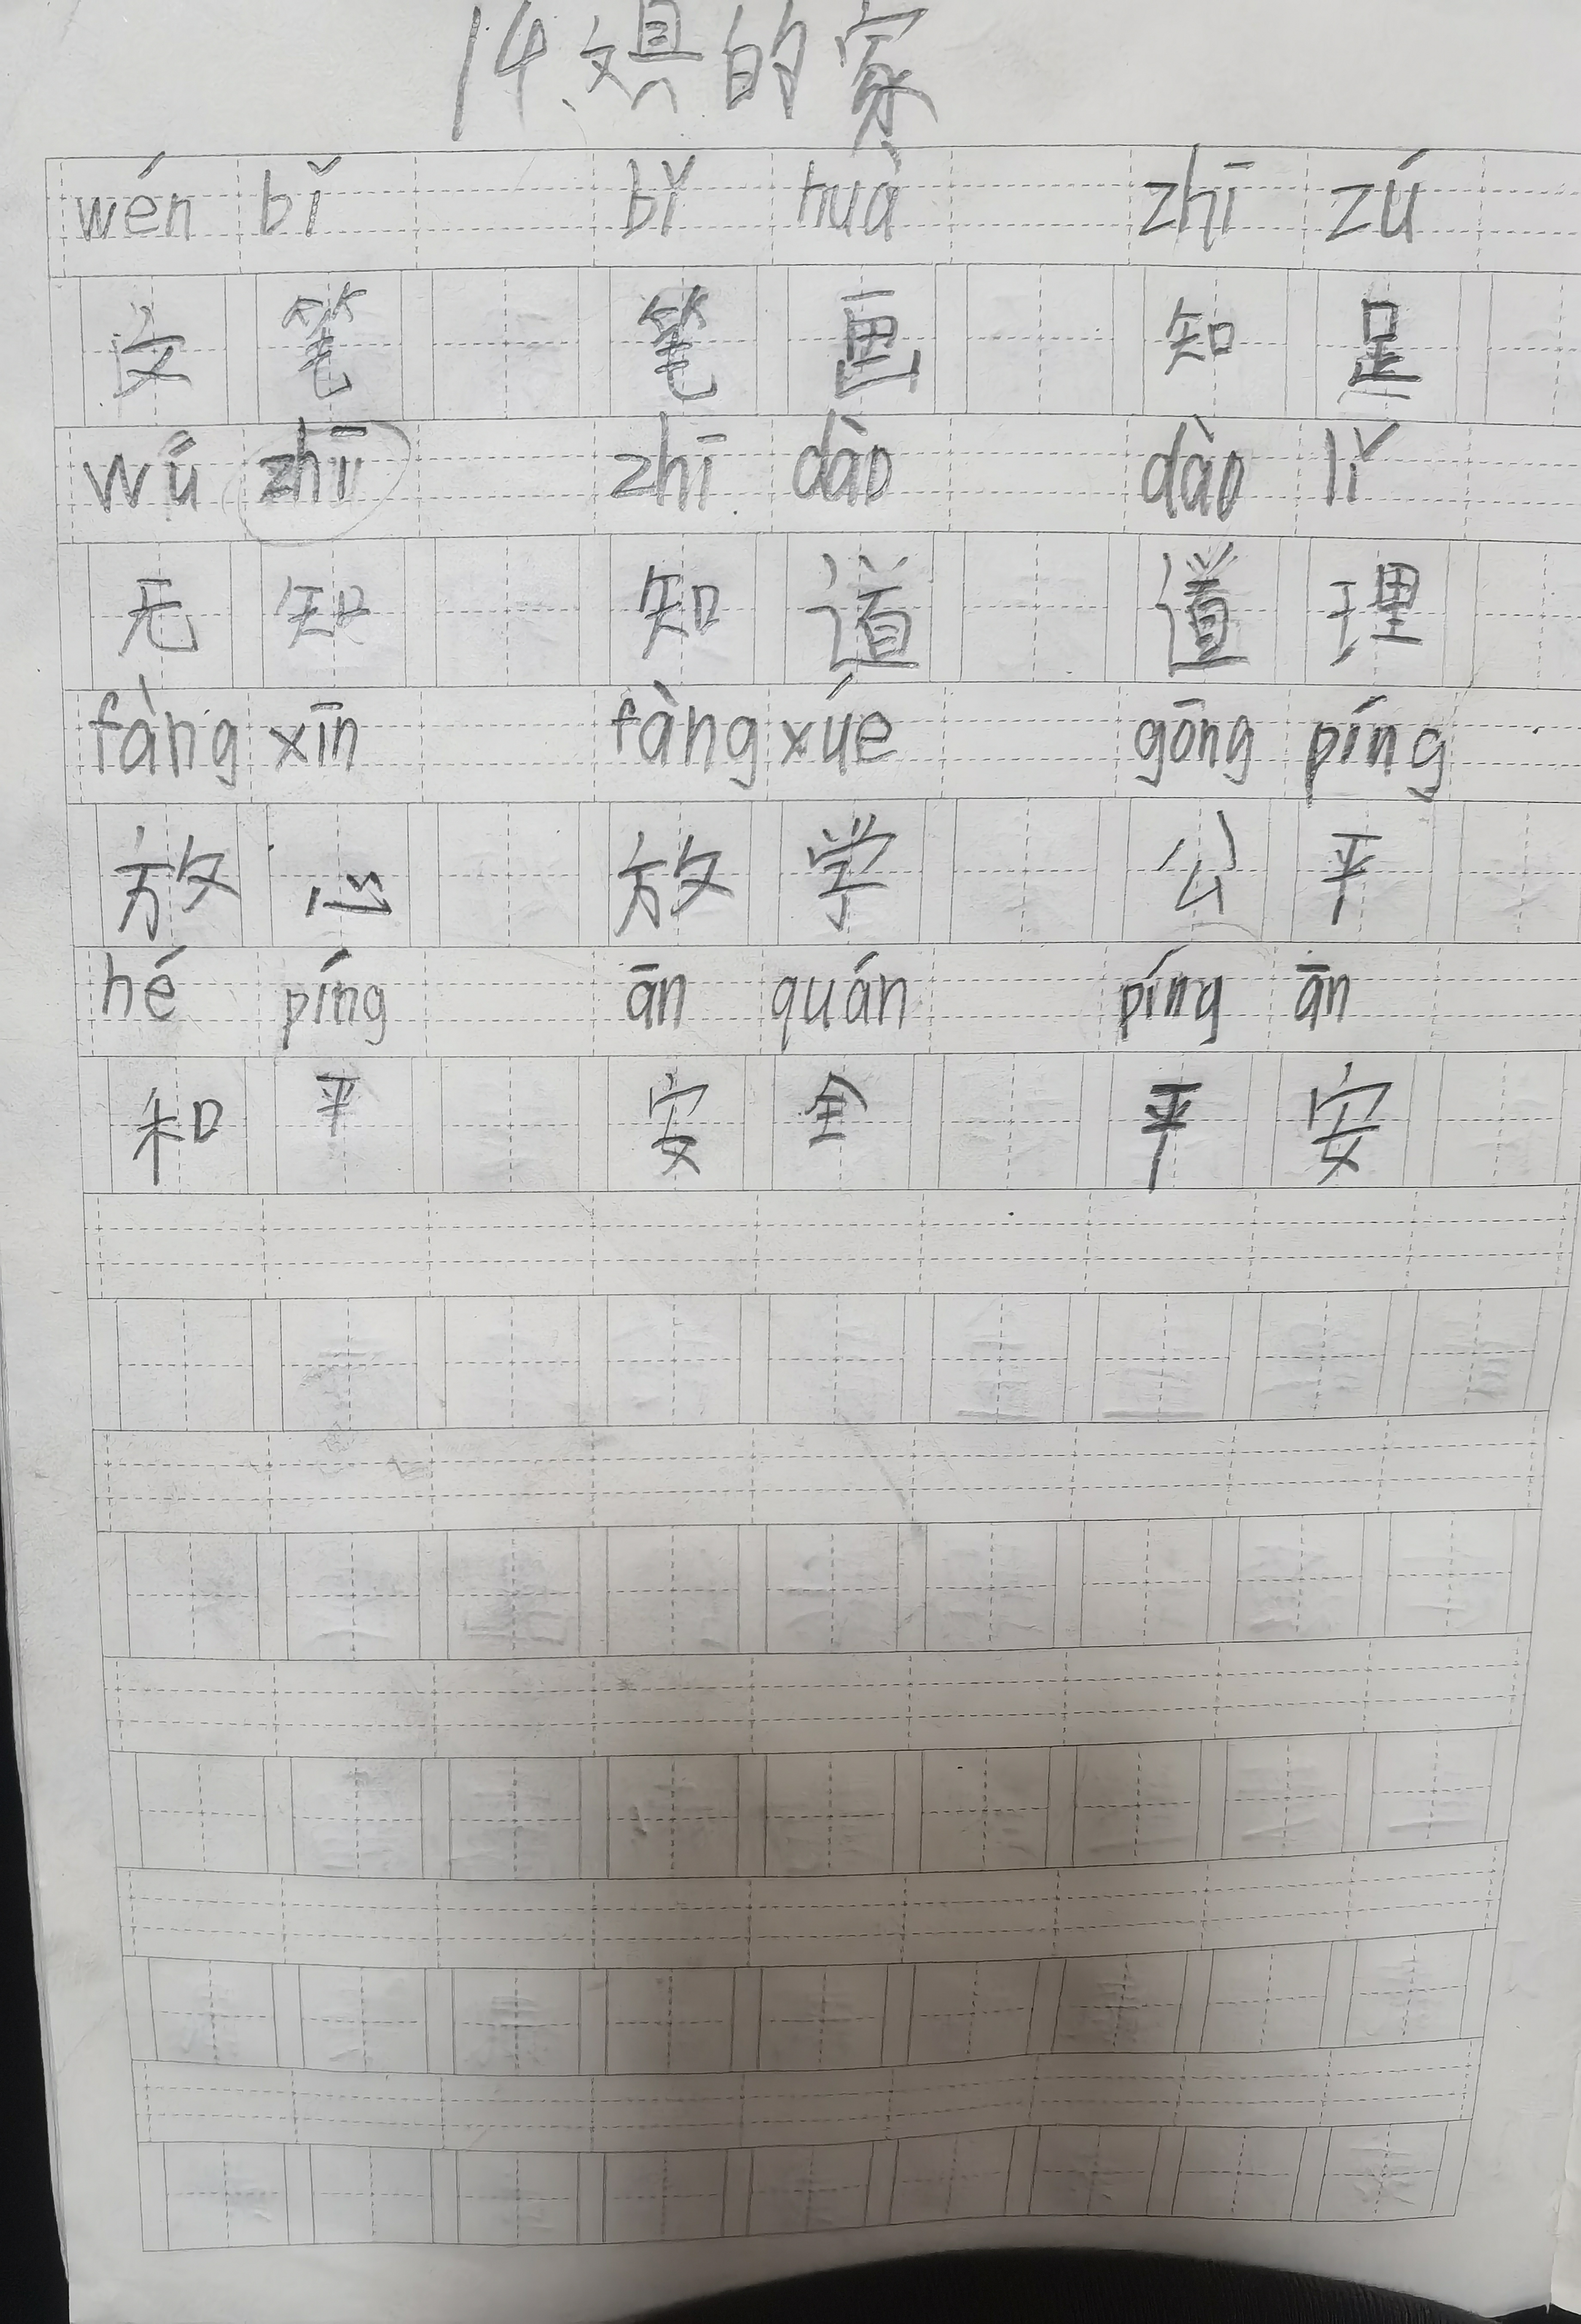 14、文具的家
wén bǐ bǐ huà zhī zú
文笔 笔画 知足
wú zhū zhī dào dào lǐ
无知 知道 道理
fàng xīn fàng xúe gōng píng
放心 放学 公平
hé píng ān quán píng ān
和平 安全 平安